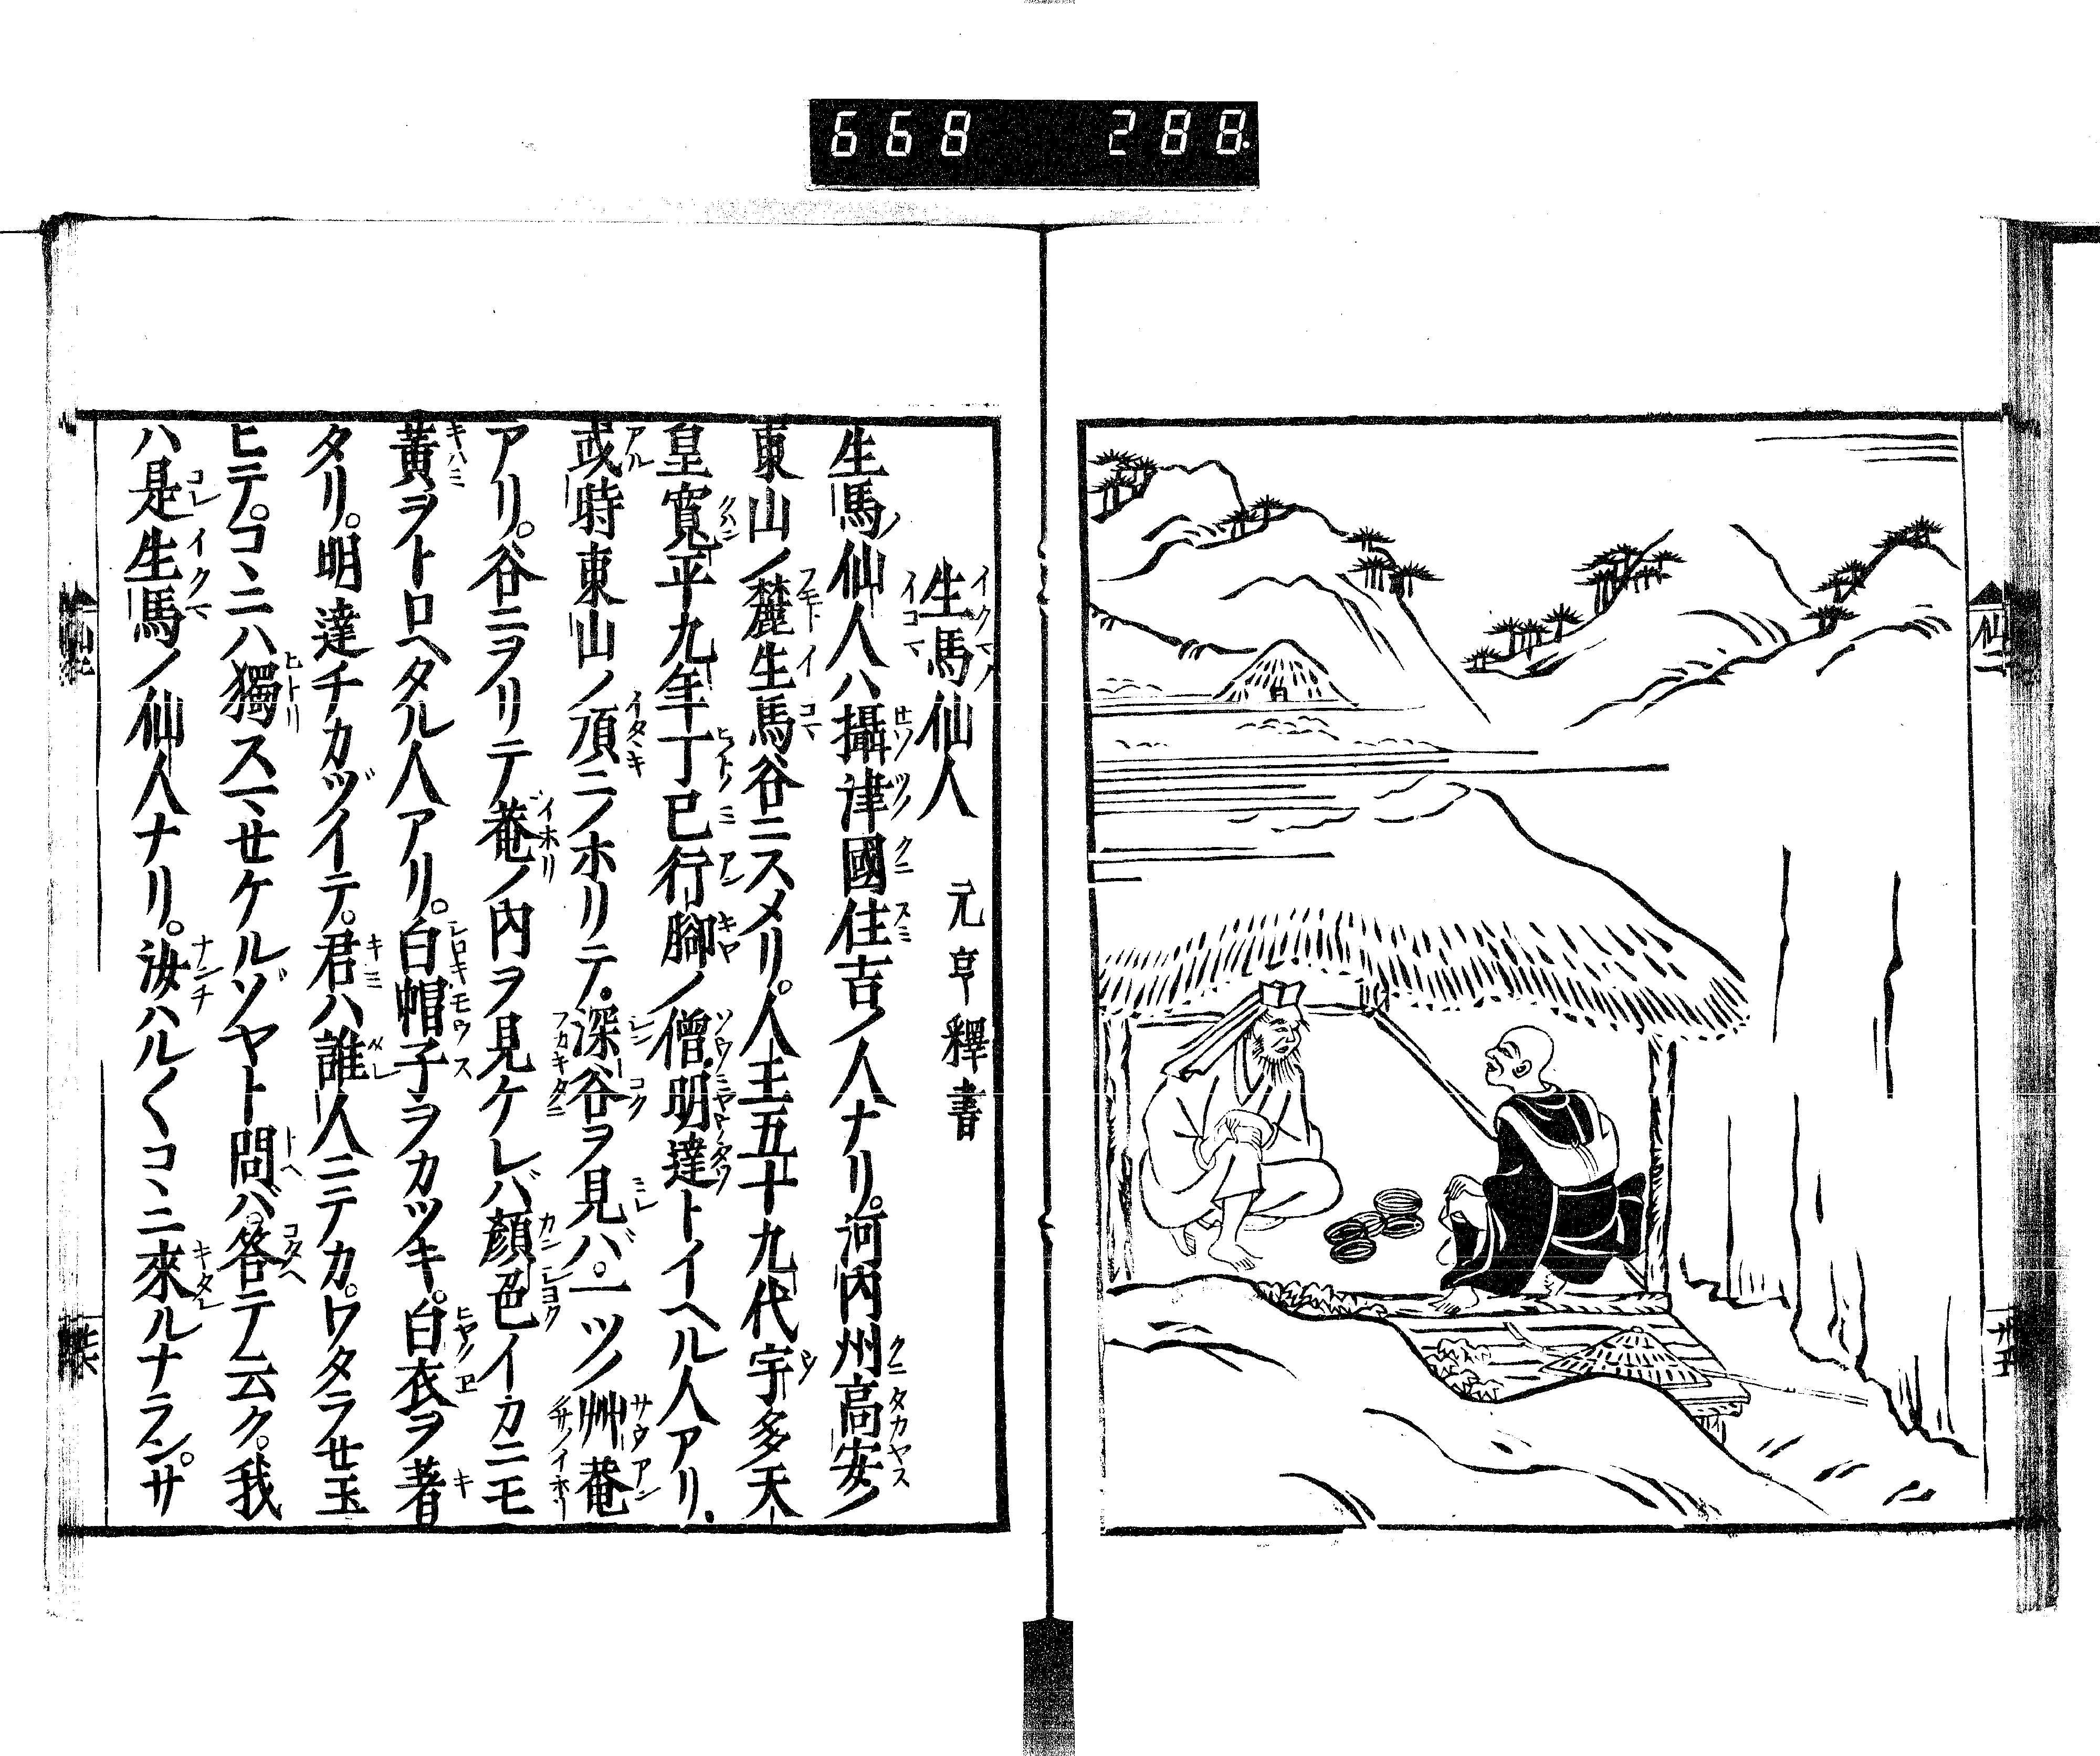 668 288
生馬仙人 元亨釋書
生馬ノ仙人ハ攝津國住吉ノ人ナリ。河内州高安ノ
東山ノ麓生馬谷ニスメリ。人王五十九代宇多天
皇寛平九年丁巳行脚ノ僧明達トイヘル人アリ.
或時東山ノ頂ニノホリテ.深谷ヲ見バ。一ツノ艸菴
アリ。谷ニヲリテ菴ノ内ヲ見ケレバ顔色イカニモ
黄ヲトロヘタル人アリ。白帽子ヲカツキ。白衣ヲ著
タリ。明達チカヅイテ。君ハ誰人ニテカ。ワタラせ玉
ヒテ。コヽニハ獨スマせケルゾヤト問バ。答テノ云ク。我
ハ是生馬ノ仙人ナリ。汝ハル〱コヽニ來ルナラン。サ